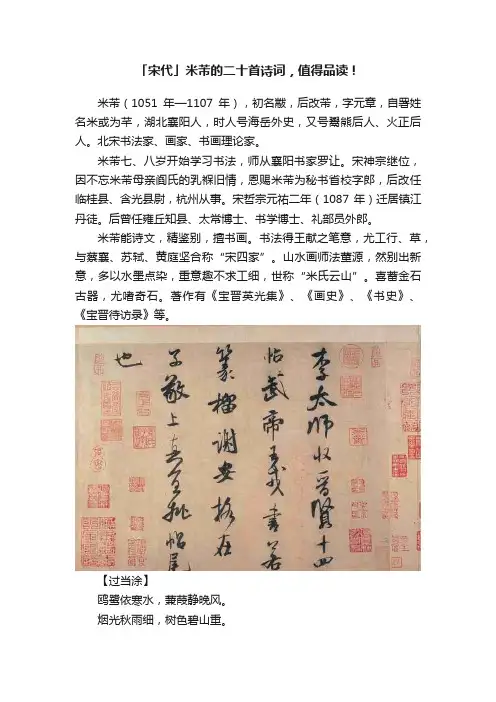 「宋代」米芾的二十首诗词，值得品读！
米芾（1051 年—1107 年），初名黻，后改芾，字元章，自署姓
名米或为芊，湖北襄阳人，时人号海岳外史，又号鬻熊后人、火正后
人。北宋书法家、画家、书画理论家。
米芾七、八岁开始学习书法，师从襄阳书家罗让。宋神宗继位，
因不忘米芾母亲阎氏的乳褓旧情，恩赐米芾为秘书省校字郎，后改任
临桂县，含光县尉，杭州从事。宋哲宗元祐二年（1087 年）迁居镇江
丹徒。后曾任雍丘知县、太常博士、书学博士、礼部员外郎。
米芾能诗文，精鉴别，擅书画。书法得王献之笔意，尤工行、草，
与蔡襄、苏轼、黄庭坚合称“宋四家”。山水画师法董源，然别出新
意，多以水墨点染，重意趣不求工细，世称“米氏云山”。喜蓄金石
古器，尤嗜奇石。著作有《宝晋英光集》、《画史》、《书史》、
《宝晋待访录》等。
李太師收晉賢十四
帖武帝王戎書若
篆籀謝安格在
子敬上真宜批帖尾
也
【过当涂】
鸥鹭依寒水，蒹葭静晚风。
烟光秋雨细，树色碧山重。